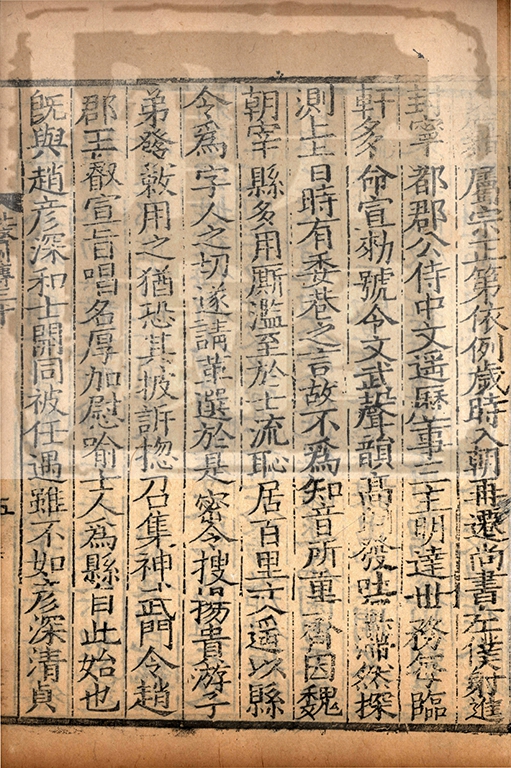 屬宗正第依例歲時入朝再遷尚書左僕射進
封寧都郡公侍中文遥歷事三主明達世務每臨
軒多命宣勑號令文武聲韻高朗發吐無滯然探
測上旨時有委巷之言故不爲知音所重齊因魏
朝宰縣多用厮濫至於士流恥居百里文遥以縣
令爲字人之切遂請革選於是密令搜揚貴游子
弟發敕用之猶恐其披訴揔召集神武門令趙
郡王叡宣旨唱名厚加慰喻士人爲縣自此始也
旣與趙彦深和士開同被任遇雖不如彦深清貞
五